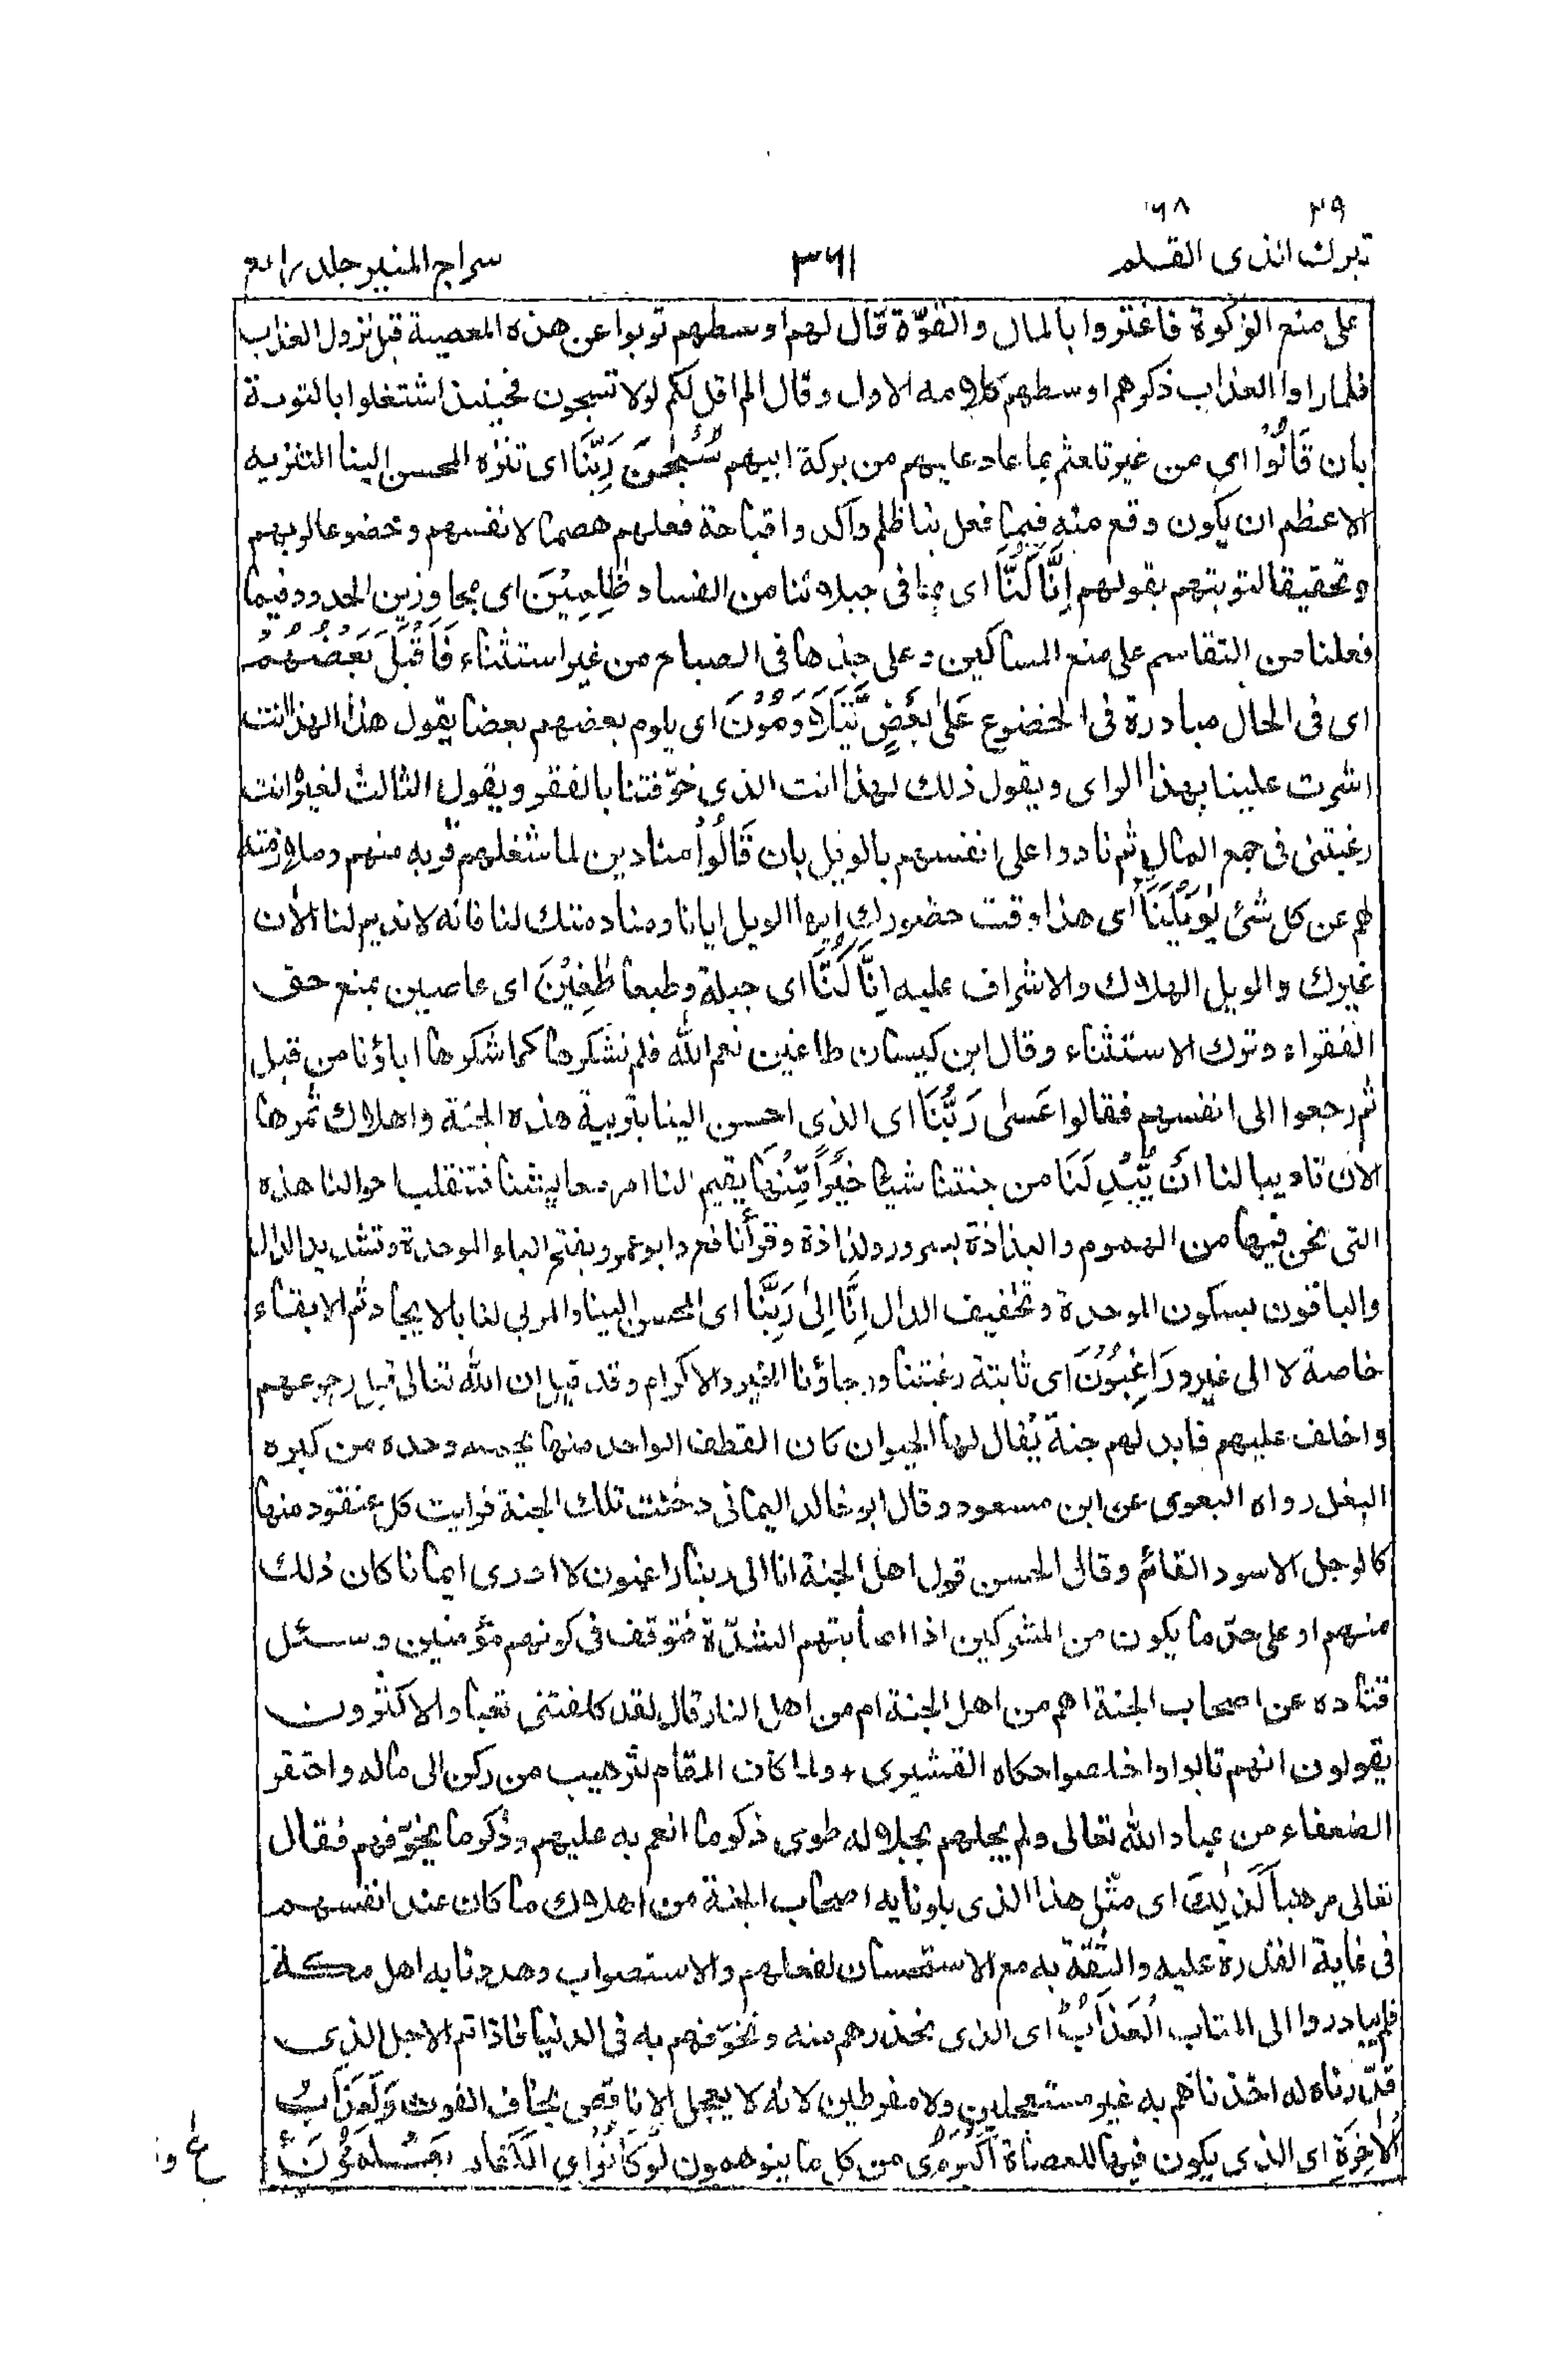 ٢٩ ٦٨
تبرك الذى القلم ٣٦١ سراج المنير جلد رابع
على منع الزكوة فاغتروا بالمال والقوّة قال لهم اوسطهم توبوا عن هذه المعصية قبل نزول العذاب
فلما راوا العذاب ذكرهم اوسطهم كلامه الاول وقال الم اقل لكم لولا تسبحون فحينئذ اشتغلوا بالتوبة
بان قَالُوْا اى من غير تلعثم بما عاد عليهم من بركة ابيهم سُبْحٰنَ رَبِّنَا اى تنزه المحسن الينا التنزيه
الاعظم ان يكون وقع منه فيما فعل بنا ظلم واكدوا قباحة فعلهم هضما لانفسهم وخضوعا لربهم
وتحقيقا لتوبتهم بقولهم اِنَّا كُنَّا اى بما فى جبلاتنا من الفساد ظٰلِمِيْنَ اى مجاوزين الحدود فيما
فعلنا من التقاسم على منع المساكين وعلى جذها فى الصباح من غير استثناء فَاَقْبَلَ بَعْضُهُمْ
اى فى الحال مبادرة فى الخضوع عَلٰى بَعْضٍ يَّتَلَاوَمُوْنَ اى يلوم بعضهم بعضا يقول هذا لهذا انت
اشرت علينا بهذا الراى ويقول ذلك لهذا انت الذى خوّفتنا بالفقر ويقول الثالث لغيره انت
رغبتنى فى جمع المال ثم نادوا على انفسهم بالويل بان قَالُوْا منادين لما شغلهم قربه منهم وملازمته
لهم عن كل شئ يٰوَيْلَنَا اى هذا وقت حضورك ايها الويل ايانا ومنادمتك لنا فانه لا نديم لنا الأن
غيرك والويل الهلاك والاشراف عليه اِنَّا كُنَّا اى جبلة وطبعا طٰغِيْنَ اى عاصين بمنع حق
الفقراء وترك الاستثناء وقال ابن كيسان طاغين نعم الله فلم نشكرها كما شكرها اباؤنا من قبل
ثم رجعوا الى انفسهم فقالوا عَسٰى رَبُّنَا اى الذى احسن الينا بتربية هذه الجنة واهلاك ثمرها
الأن تاديبا لنا اَنْ يُّبْدِلَنَا من جنتنا شيئا خَيْرًا مِّنْهَا يقيم لنا امر معايشنا فتنقلب احوالنا هذه
التى نحن فيها من الهموم والبذاذة بسرور ولذاذة وقرأ نافع وابو عمرو بفتح الباء الموحدة وتشديد الدال
والباقون بسكون الموحدة وتخفيف الدال اِنَّا اِلٰى رَبِّنَا اى المحسن الينا والمربى لنا بالايجاد ثم الابقاء
خاصة لا الى غيره رَاغِبُوْنَ اى ثابتة رغبتنا ورجاؤنا الخير والاكرام وقد قيل ان الله تعالى قبل رجوعهم
واخلف عليهم فابدلهم جنة يُقال لها الحيوان كان القطف الواحد منها يحمله وحده من كبره
البغل رواه البغوى عن ابن مسعود وقال ابو خالد اليمانى دخلت تلك الجنة فرايت كل عنقود منها
كالرجل الاسود القائم وقال الحسن قول اهل الجنة انا الى ربنا راغبون لا ادرى ايمانا كان ذلك
منهم او على حدّ ما يكون من المشركين اذا اصابتهم الشدّة فتوقف فى كونهم مؤمنين وسئل
قتاده عن اصحاب الجنة اهم من اهل الجنة ام من اهل النار قال لقد كلفتنى تعبا والاكثرون
يقولون انهم تابوا واخلصوا حكاه القشيرى + ولما كان المقام لترهيب من ركن الى ماله واحتقر
الضعفاء من عباد الله تعالى ولم يجلهم بجلاله طوى ذكر ما انعم به عليهم وذكر ما يخوّفهم فقال
تعالى مرهبا كَذٰلِكَ اى مثل هذا الذى بلونا به اصحاب الجنة من اهلاك ما كان عند انفسهم
فى غاية القدرة عليه والثقة به مع الاستحسان لفعلهم والاستصواب وهددنا به اهل مكة
فلم يبادروا الى المتاب الْعَذَابُ اى الذى نحذرهم منه ونخوّفهم به فى الدنيا فاذا تم الاجل الذى
قدّرناه له اخذناهم به غير مستعجلين ولا مفرطين لانه لا يعجل الا ناقص يخاف الفوت وَلَعَذَابُ
الْاٰخِرَةِ اى الذى يكون فيها للعصاة اَكْبَرُ اى من كل ما يتوهمون لَوْ كَانُوْا اى الكفار يَعْلَمُوْنَ